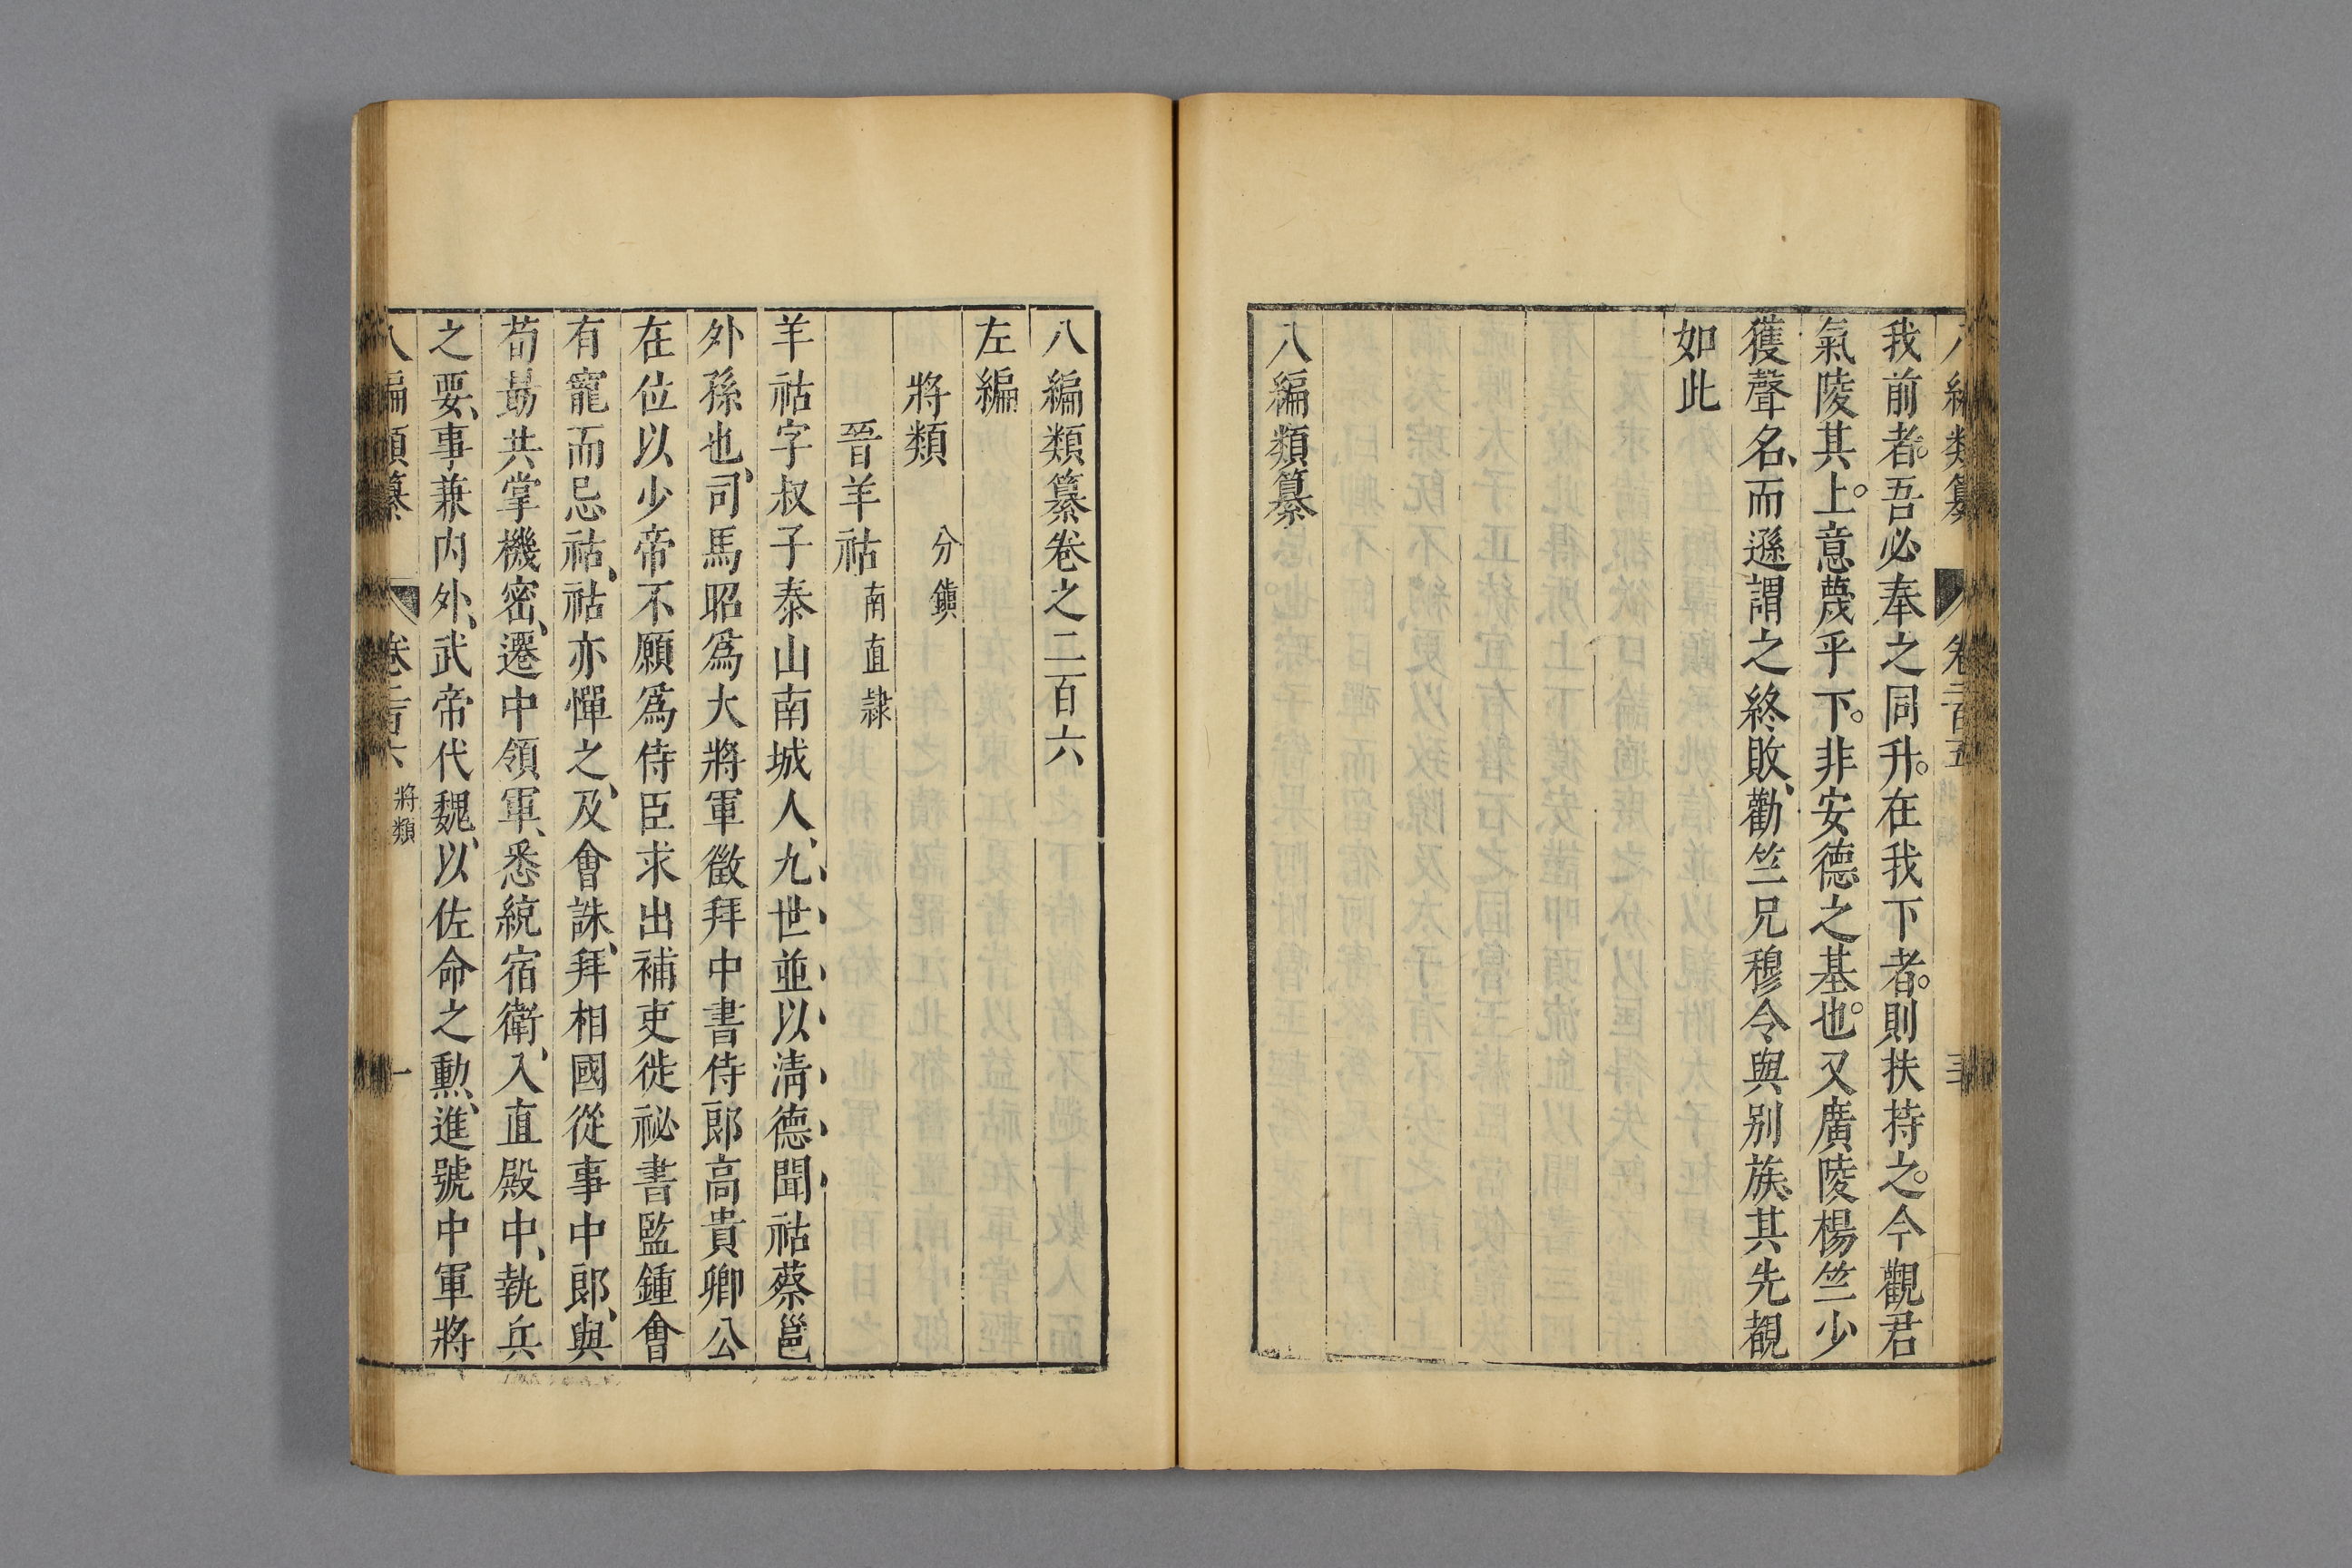 我前者。吾必奉之同升。在我下者。則扶持之。今觀君
氣陵其上。意蔑乎下。非安德之基也。又廣陵楊竺少
獲聲名、而遜謂之終敗、勸竺兄穆令與别族、其先覩
如此
八編類纂
八編類纂卷之二百六
左編
將類 分鎮
晉羊祜 南直隷
羊祜字叔子泰山南城人、九世並以清德聞祜蔡邕
外孫也、司馬昭爲大將軍徵拜中書侍郎高貴鄉公
在位以少帝不願爲侍臣求出補吏徙祕書監鍾會
有寵而忌祜、祜亦憚之、及會誅、拜相國從事中郎、與
荀勗共掌機密、遷中領軍、悉統宿衛、入直殿中、執兵
之要、事兼内外、武帝代魏、以佐命之勳、進號中軍將
八編類纂 卷二百六 將類 一